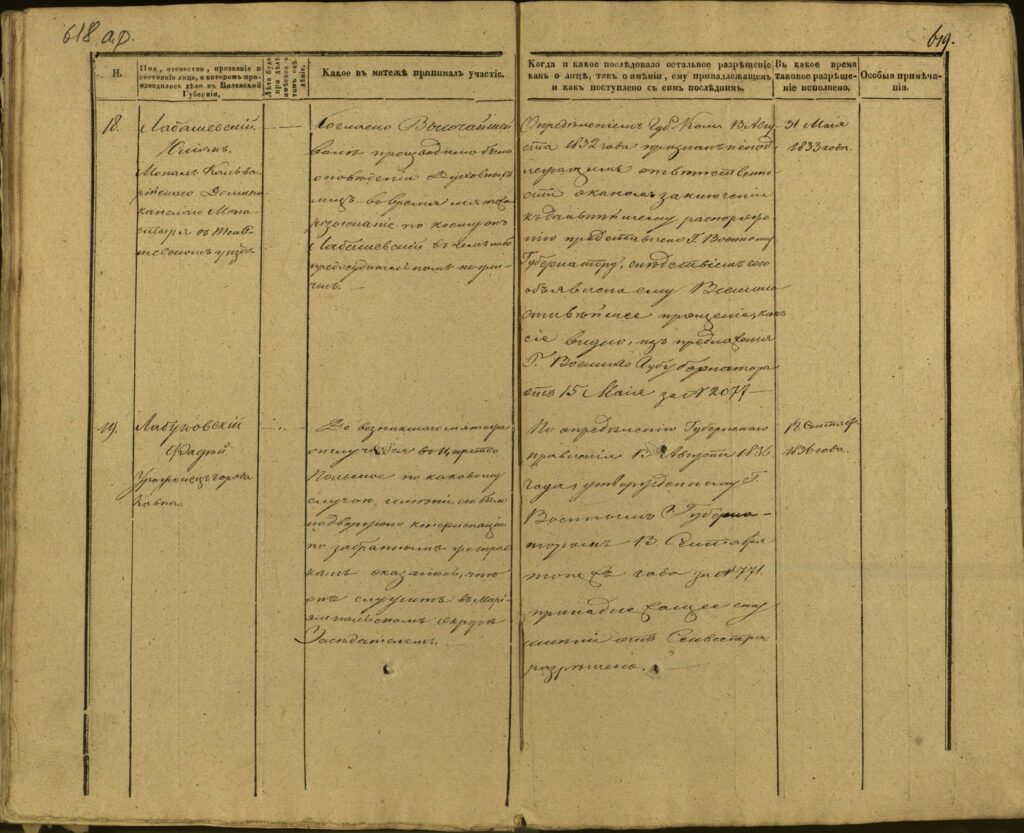 618 ар.
619.
Н.
Имя, отечество, прозваніе и
состояніе лица, о которомъ про-
изводилось дѣло въ Виленской
Губерніи.
Какое въ мятежѣ принималъ участіе.
Когда и какое послѣдовало остальное разрѣшеніе
какъ о лицѣ, такъ о имѣніи, ему принадлежащемъ
и какъ поступлено съ симъ послѣднимъ.
Въ какое время
таковое разрѣше-
ніе исполнено.
Особыя примѣча-
нія.
18.
Лабашевскій
Монахъ Кальва-
рійскаго Домини-
канскаго Мона-
стыря въ Тель-
шевскомъ уѣздѣ
Согласно Высочайшей
волѣ производимо было
о поведеніи Духовныхъ
лицъ во время мятежа
дознаніе по коему онъ
Лабашевскій въ чемъ либо
предосудительномъ не
Опредѣленіемъ Губ. Ком. 13 Авгу-
ста 1832 года признанъ непод-
лежащимъ отвѣтственно-
сти о каковомъ заключеніи
къ дальнѣйшему распоряже-
нію представлено Г. Военному
Губернатору, слѣдствіемъ чего
объявлено ему Всемило-
стивѣйшее прощеніе, какъ
сіе видно, изъ предложенія
Г. Военнаго Губернатора
отъ 15 Маія за № 2077
31 Маія
1833 года.
19.
Лабуновскій
Фадей
Уроженецъ города
Ковна.
До возникшаго мятежа
отлучился въ Царство
Польское по каковому
случаю имѣніе его было
подвержено конфискаціи
по забраннымъ же справ-
камъ оказалось, что
онъ служитъ въ Марі-
ямпольскомъ округѣ
Засѣдателемъ.
По опредѣленію Губернскаго
правленія 13 Августа 1836
года, утвержденному Г.
Военнымъ Губерна-
торомъ 13 Сентября
того жъ года за № 771.
принадлежащее ему
имѣніе отъ Секвестра
разрѣшено.
Сентяб.
1836 года.